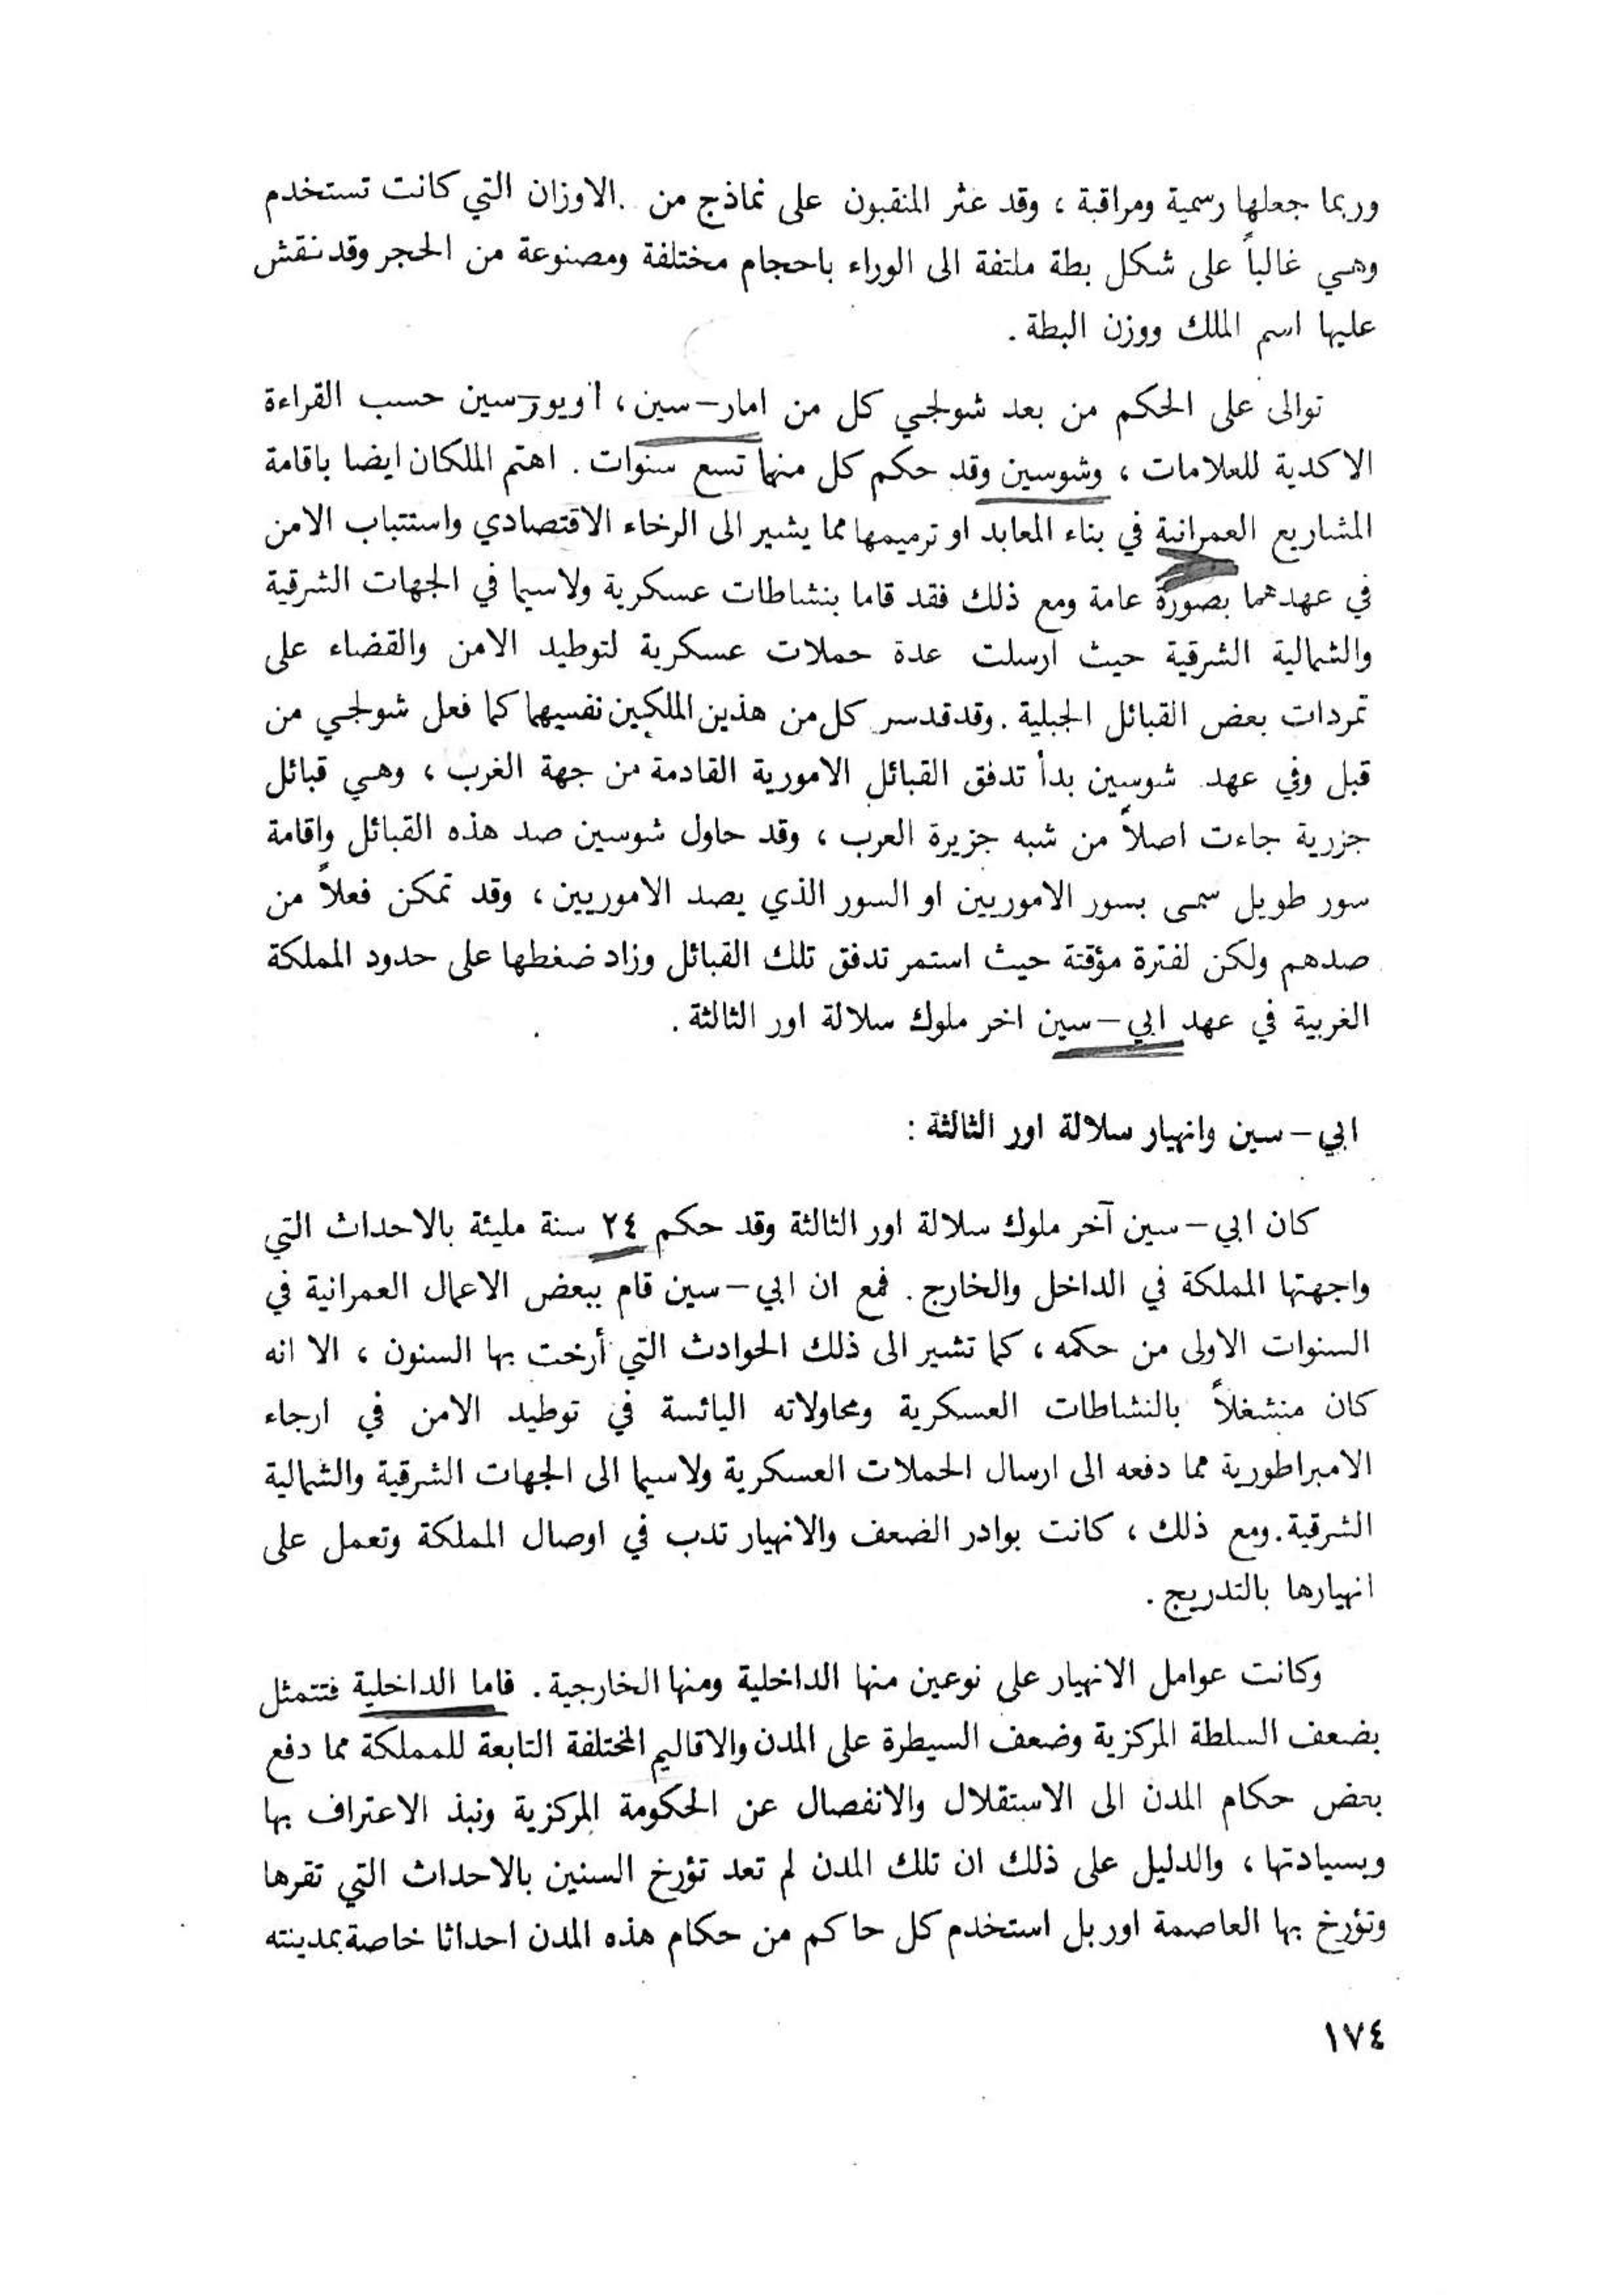 وربما جعلها رسمية ومراقبة ، وقد عثر المنقبون على نماذج من .الاوزان التي كانت تستخدم
وهي غالباً على شكل بطة ملتفة الى الوراء باحجام مختلفة ومصنوعة من الحجر وقد نقش
عليها اسم الملك ووزن البطة .
توالى على الحكم من بعد شولجي كل من امار–سين ، او يور–سين حسب القراءة
الاكدية للعلامات ، وشوسين وقد حكم كل منهما تسع سنوات . اهتم الملكان ايضا باقامة
المشاريع العمرانية في بناء المعابد او ترميمها مما يشير الى الرخاء الاقتصادي واستتباب الامن
في عهدهما بصورة عامة ومع ذلك فقد قاما بنشاطات عسكرية ولاسيما في الجهات الشرقية
والشمالية الشرقية حيث ارسلت عدة حملات عسكرية لتوطيد الامن والقضاء على
تمردات بعض القبائل الجبلية . وقد قدس كل من هذين الملكين نفسيهما كما فعل شولجي من
قبل وفي عهد شوسين بدأ تدفق القبائل الامورية القادمة من جهة الغرب ، وهي قبائل
جزرية جاءت اصلاً من شبه جزيرة العرب ، وقد حاول شوسين صد هذه القبائل واقامة
سور طويل سمى بسور الاموريين او السور الذي يصد الاموريين ، وقد تمكن فعلاً من
صدهم ولكن لفترة مؤقتة حيث استمر تدفق تلك القبائل وزاد ضغطها على حدود المملكة
الغربية في عهد ابي–سين اخر ملوك سلالة اور الثالثة .
ابي–سين وانهيار سلالة اور الثالثة :
كان ابي–سين آخر ملوك سلالة اور الثالثة وقد حكم ٢٤ سنة مليئة بالاحداث التي
واجهتها المملكة في الداخل والخارج . فمع ان ابي–سين قام ببعض الاعمال العمرانية في
السنوات الاولى من حكمه ، كما تشير الى ذلك الحوادث التي أرخت بها السنون ، الا انه
كان منشغلاً بالنشاطات العسكرية ومحاولاته اليائسة في توطيد الامن في ارجاء
الامبراطورية مما دفعه الى ارسال الحملات العسكرية ولاسيما الى الجهات الشرقية والشمالية
الشرقية. ومع ذلك ، كانت بوادر الضعف والانهيار تدب في اوصال المملكة وتعمل على
انهيارها بالتدريج .
وكانت عوامل الانهيار على نوعين منها الداخلية ومنها الخارجية . فاما الداخلية فتتمثل
بضعف السلطة المركزية وضعف السيطرة على المدن والاقاليم المختلفة التابعة للمملكة مما دفع
بعض حكام المدن الى الاستقلال والانفصال عن الحكومة المركزية ونبذ الاعتراف بها
وبسيادتها ، والدليل على ذلك ان تلك المدن لم تعد تؤرخ السنين بالاحداث التي تقرها
وتؤرخ بها العاصمة اور بل استخدم كل حاكم من حكام هذه المدن احداثا خاصة بمدينته
١٧٤